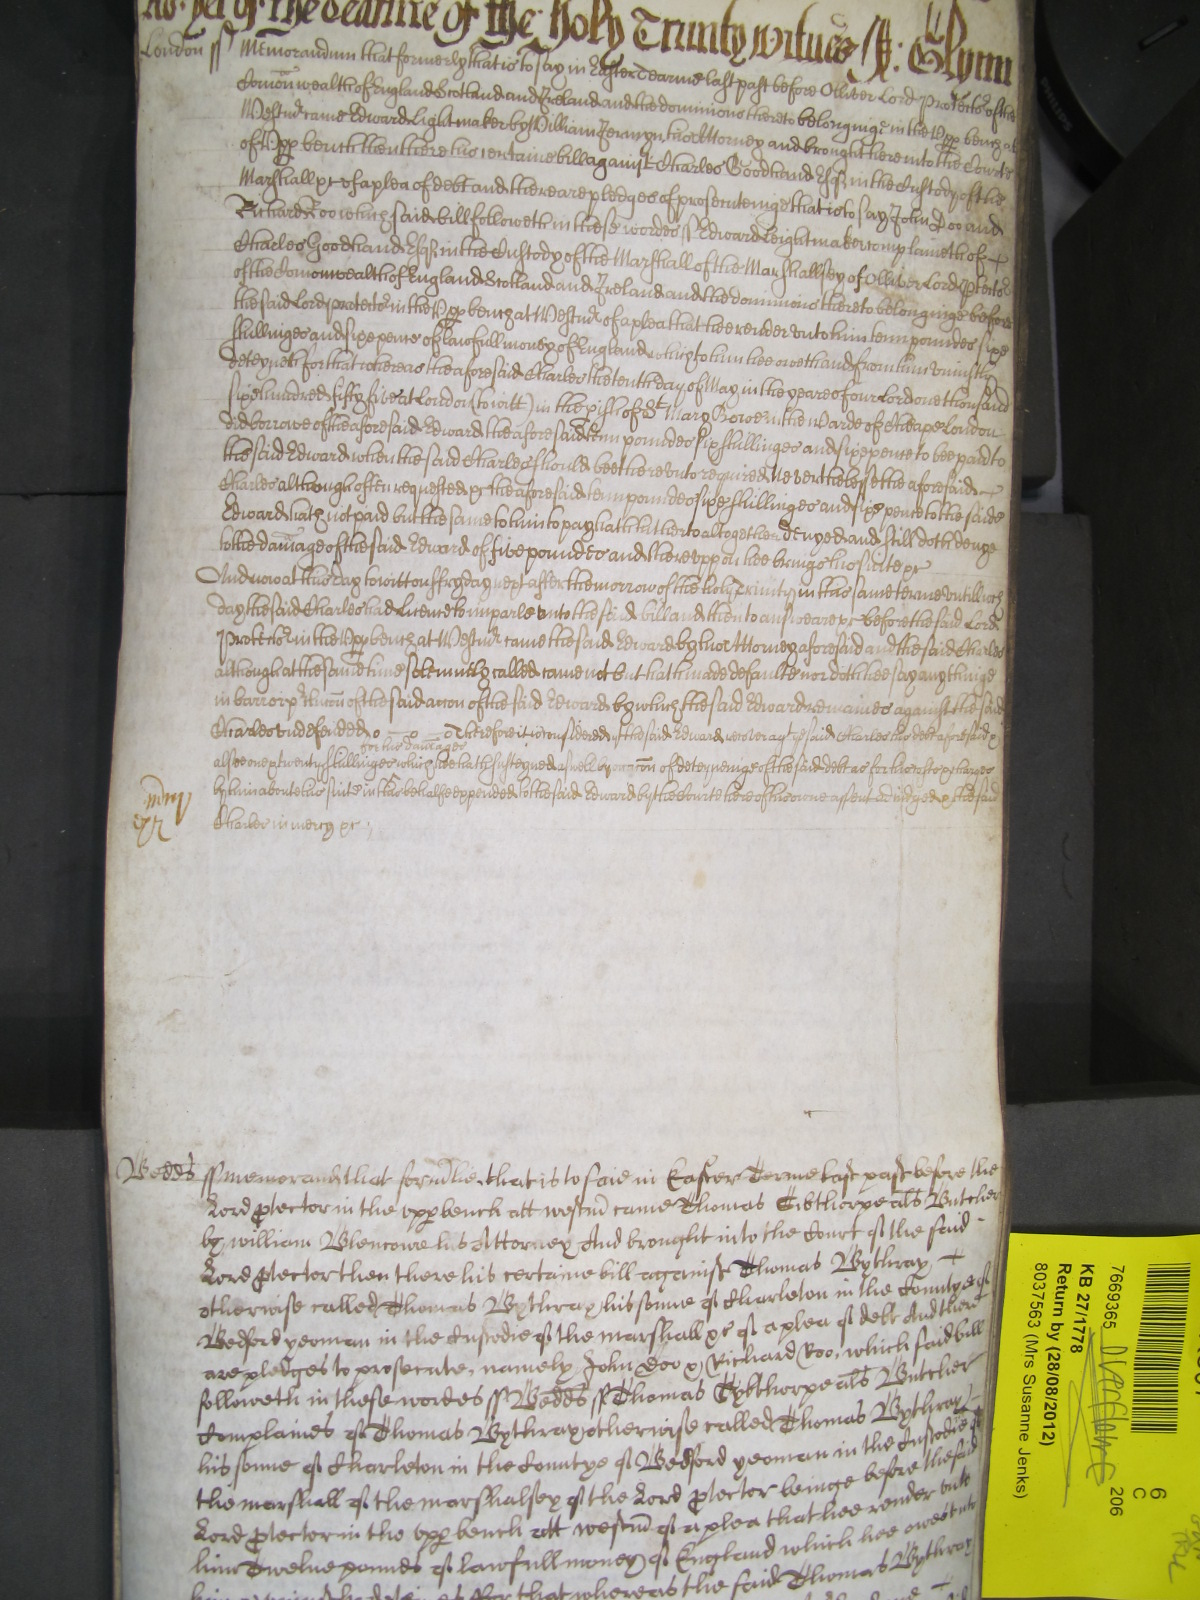 yet of the tearme of the Holy Trinity witnes Glynn
London ss Memorandum that formerly that is to say in Easter Tearme last past before Olliver Lord Protector of the
Comonwealth of England Scotland and Ireland and the dominions thereto belonginge in the Upp bench at
Westmr came Edward Lightmaker by William Jermyn his Attorney and brought here into the Court
of Upp bench then there his certaine bill against Charles Goodhand Esqr in the Custody of the
Marshall &c of a plea of debt and there are pledges of prosecuteinge that is to say John Doo and
Richard Roo which said bill followeth in these wordes ss Edward Leightmaker complaineth of
Charles Goodhand Esqr in the Custody of the Marshall of the Marshallsey of Olliver Lord Ptector
of the Comonwealth of England Scotland and Ireland and the dominions thereto belonginge before
the said Lord Protector in the Upp bench at Westmr of a plea that hee render unto him tenn poundes sixe
shillinges and sixe pence of lawfull money of England which to him hee oweth and from him uniustly
deteyneth for that whereas the aforesaid Charles the tenth day of May in the yeare of our Lord one thousand
sixe hundred fifty five at London (to witt) in the pish of St Mary Bowe in the Warde of Cheape London
did borrowe of the aforesaid Edward the aforesaid tenn poundes six shillinges and sixe pence to bee paid to
the said Edward when the said Charles should bee thereunto required Neverthelesse the aforesaid
Charles although often requested &c the aforesaid tenn poundes sixe shillinges and sixe pence to the saide
Edward hath not paid but the same to him to pay hath hitherto altogether denyed and still doth denye
to the damage of the said Edward of five poundes and thereuppon hee brings his suite &c
And now at this day to witt on ffryday next after the morrow of the holy Trinity in this same terme untill which
day the said Charles had Licence to imparle unto the said bill and then to answeare &c before the said Lord
Protector in the Upp bench at Westmr came the said Edward by his Attorney aforesaid and the said Charles
although at the same time solemnly called came not but hath made default nor doth hee say any thinge
in barr or of the said accon of the said Edward by which the said Edward remaines against the said
Charles undefended Therefore it is considered yt the said Edward recover agt ye said Charles his debt aforesaid &
for his damages
alsoe twenty shillinges which hee hath susteyned aswell by occon of deteyneinge of the said debt as for his costes & charges
by him about his suite in this behalfe expended to the said Edward by the Court here of his owne assent adiudged & the said
Charles in mercy &c
mcy
Bedds ss Memorand that formlie that is to said in Easter Terme last past before the
Lord Ptector in the uppbench att westm came Thomas Tibthorpe als Butcher
by william Blencowe his Attorney And brought into the Court of the said
Lord Ptector then there his certaine bill against Thomas Wythray
otherwise called Thomas Wythray his sonne of Charleton in the Countye of
Bedford yeoman in the Custodie of the marshall &c of a plea of debt And there
are pledges to prosecute, namely John Doo & Richard Roo, which said bill
followeth in these wordes ss Bedds ss Thomas Tybthorpe als Butcher
Complaines of Thomas Wythray otherwise called Thomas Wythray
his sonne of Charleton in the Countye of Bedford yeoman in the Custodie of
the marshall of the marshalsey of the Lord Ptector beinge before the said
Lord Ptector in the uppbench att westm of a plea that hee render unto
him Twelve pounds of lawfull money of England which hee owes unto
him for that whereas the said Thomas Wythray
PHILIPS
7669365
KB 27/1778
Return by (28/08/2012)
8037563 (Mrs Susanne Jenks)
206
6
C